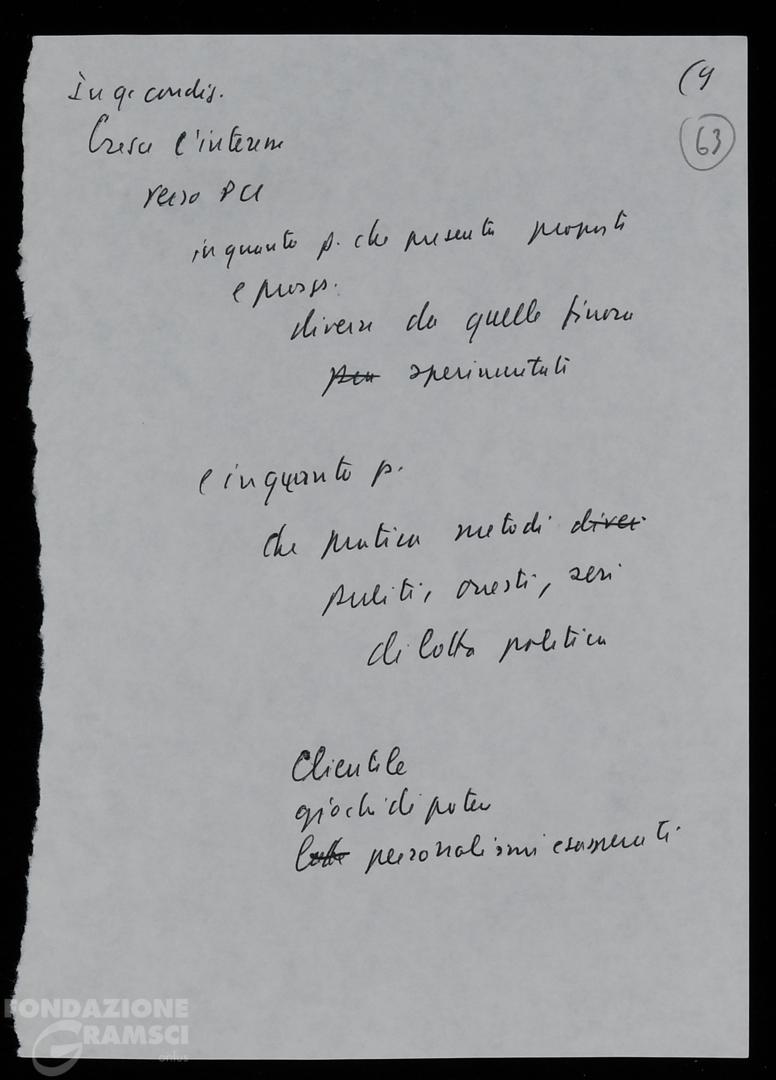 In q. condiz.
(4
63
Cresce l'interesse
verso PCI
in quanto p. che presenta proposte
e progr.
diverse da quelle finora
sperimentati
e in quanto p.
che pratica metodi diver
puliti, onesti, seri
di lotta politica
Clientele
giochi di potere
lotte personalismi esasperati
FONDAZIONE
GRAMSCI
onlus